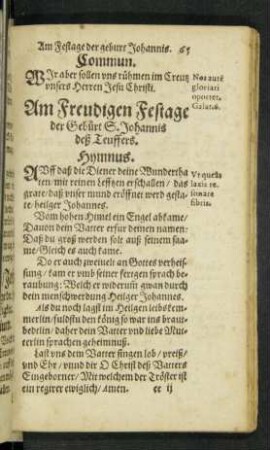 Am Festage der geburt Johannis. 65
Commun.
WIr aber sollen vns rühmen im Creutz
vnsers Herren Jesu Christi.
Nos aute
gloriari
oportet.
Galat. 6.
Am Freudigen Festage
der Gebürt S. Johannis
deß Teuffers.
Hymnus.
AVff daß die Diener deine Wundertha
ten / mit reinen lefftzen erschallen / das
grate / daß vnser mund eröffnet werd gesta-
te / heilger Johannes.
Vt queät
laxis re-
sonare
fibris.
Vom hohen Himel ein Engel abkame /
Dauon dein Vatter erfur deinen namen:
Daß du groß werden solt auß seinem saa-
me / Gleich es auch kame.
Do er auch zweinelt an Gottes verheis-
sung / kam er vmb seiner feregen sprach be-
raubung: Welch er widerum gwan durch
dein menschwerdung Heilger Johannes.
Als du noch lagst im Heilgen leibs kem-
merlin / fuldstu den könig so war ins braut-
bedelin / daher dein Vatter vnd liebe Mut-
terlin sprachen geheimnuß.
Last vns dem Vatter singen lob / preiß /
vnd Ehr / vnnd dir O Christ deß Vatters
Eingeborner / Mit welchem der Tröster ist
ein regirer ewiglich / Amen.
ee ij